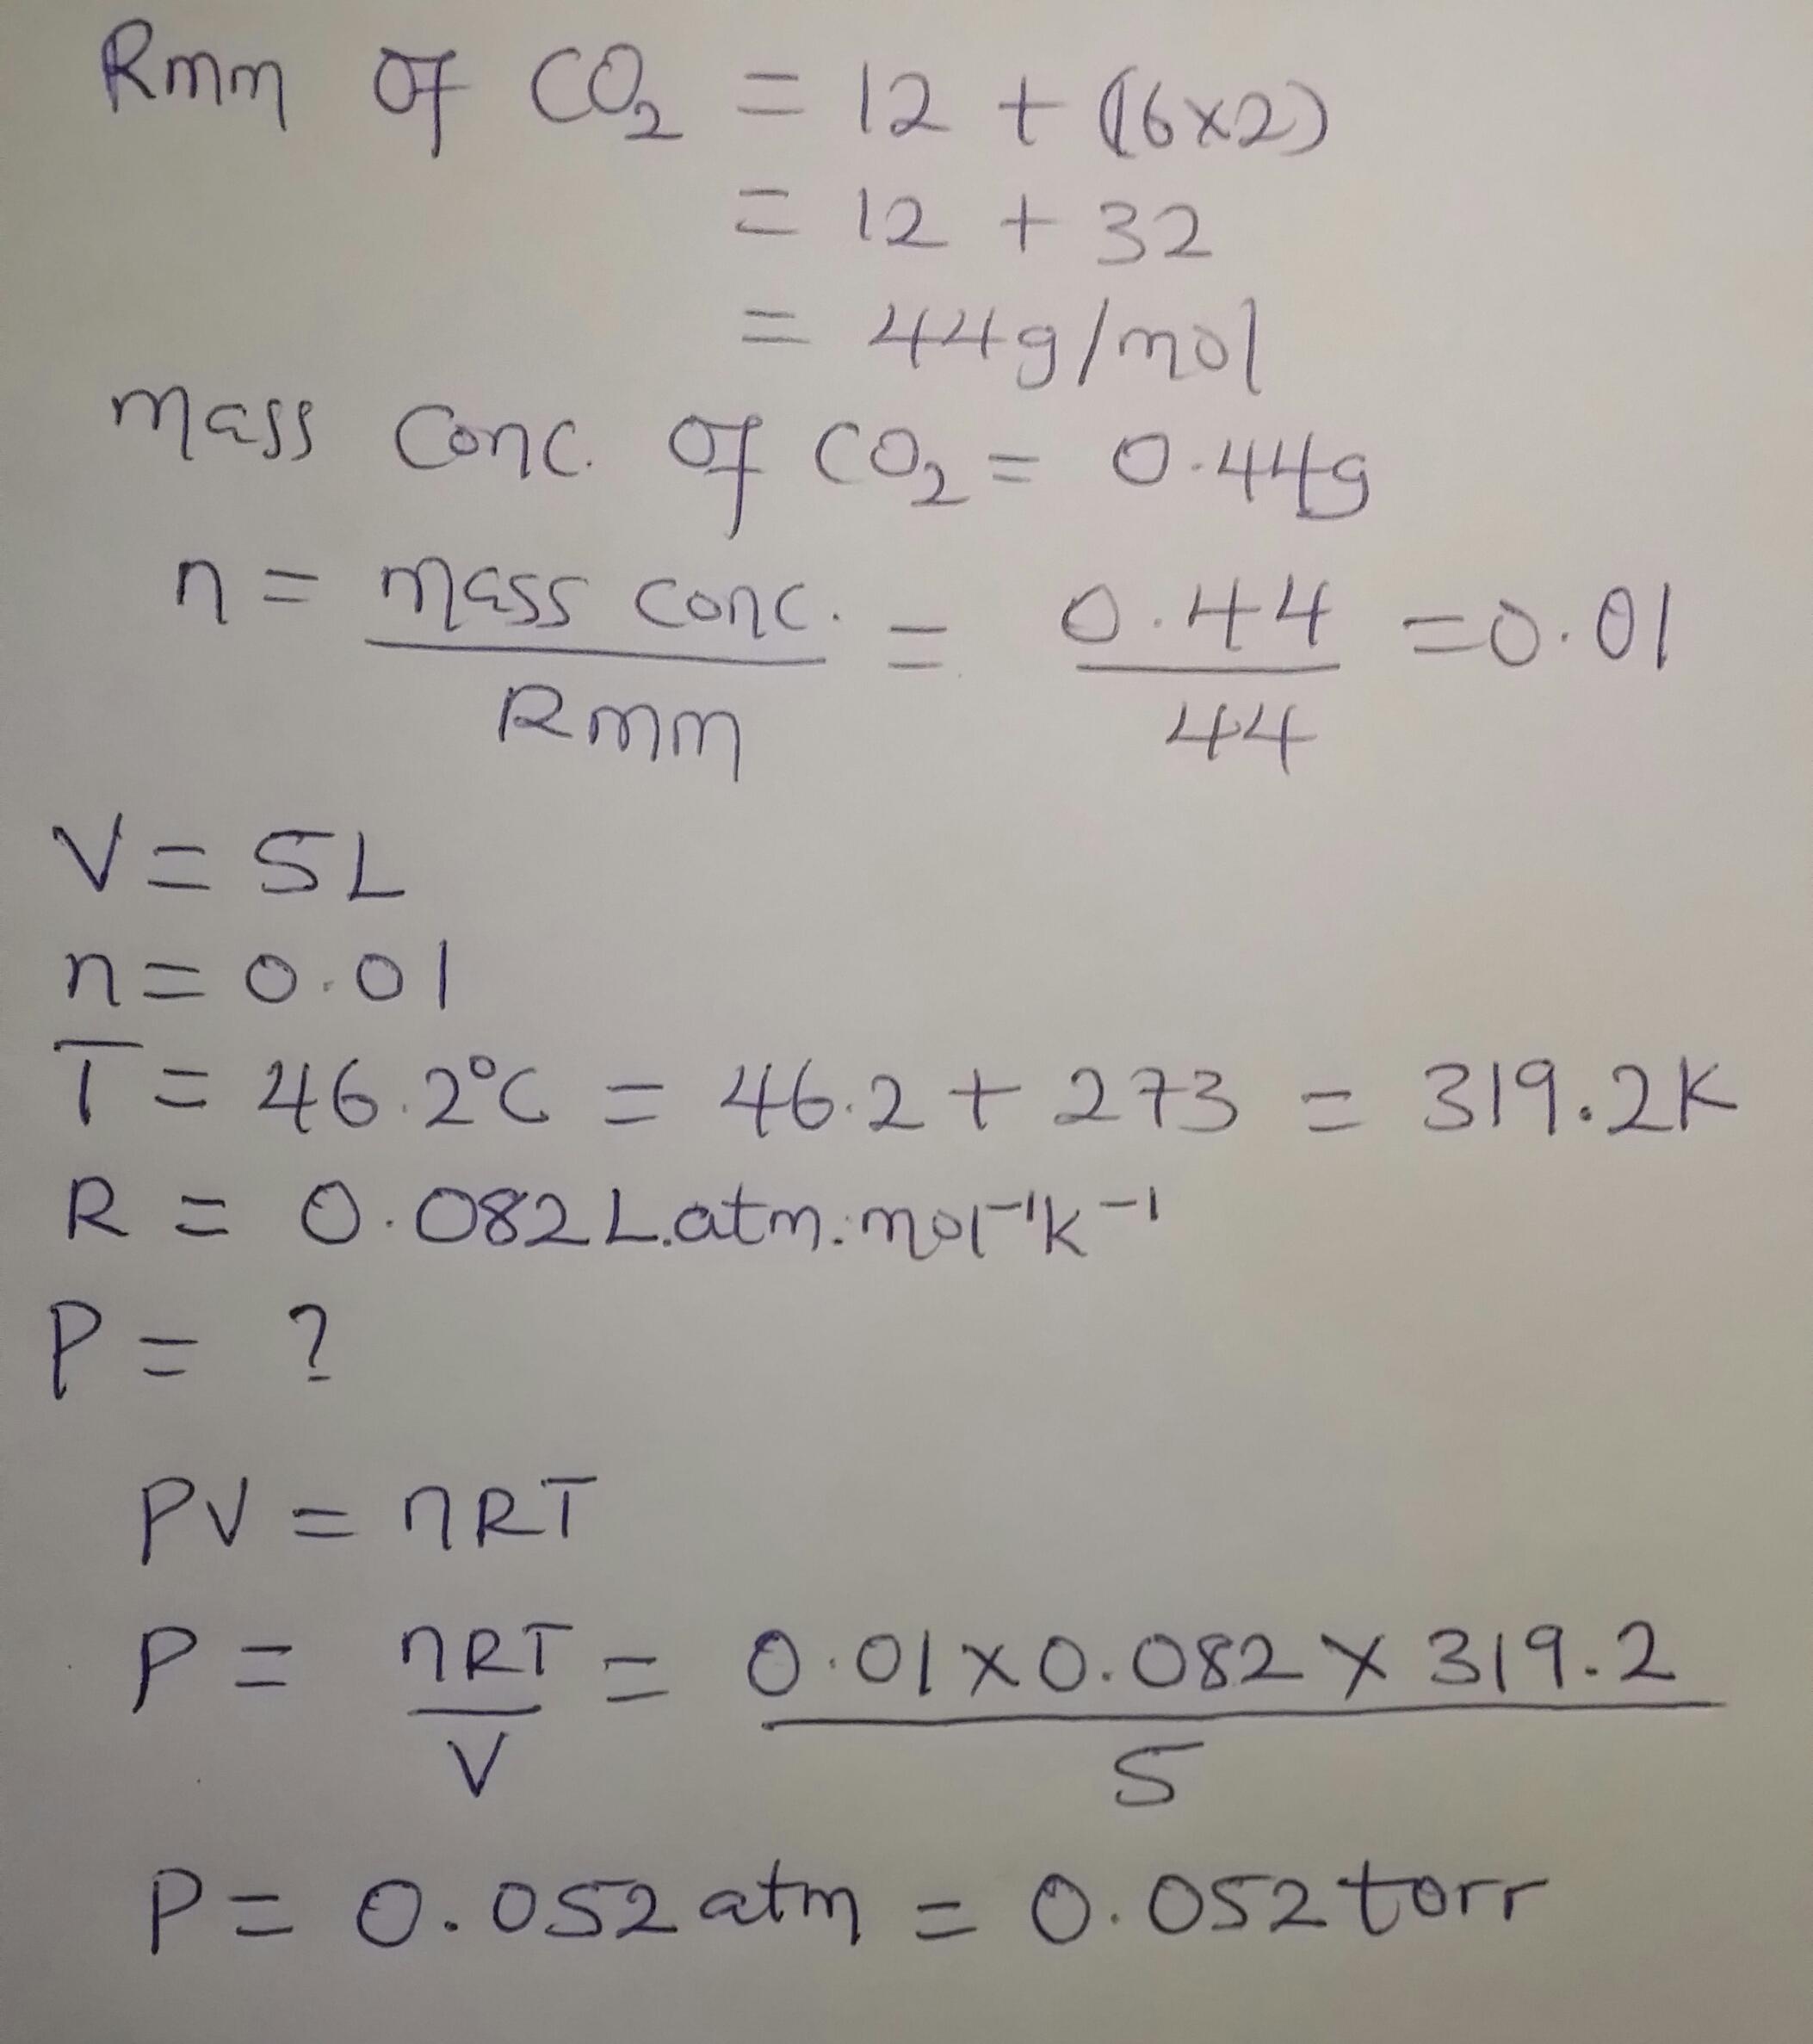 Rmm of CO₂ = 12 + (16×2)
= 12 + 32
= 44g/mol
mass conc. of CO₂ = 0.44g
n = mass conc. / Rmm = 0.44 / 44 = 0.01
V = 5L
n = 0.01
T = 46.2°C = 46.2 + 273 = 319.2K
R = 0.082 L.atm.mol⁻¹K⁻¹
P = ?
PV = nRT
P = nRT / V = 0.01×0.082×319.2 / 5
P = 0.052 atm = 0.052 torr